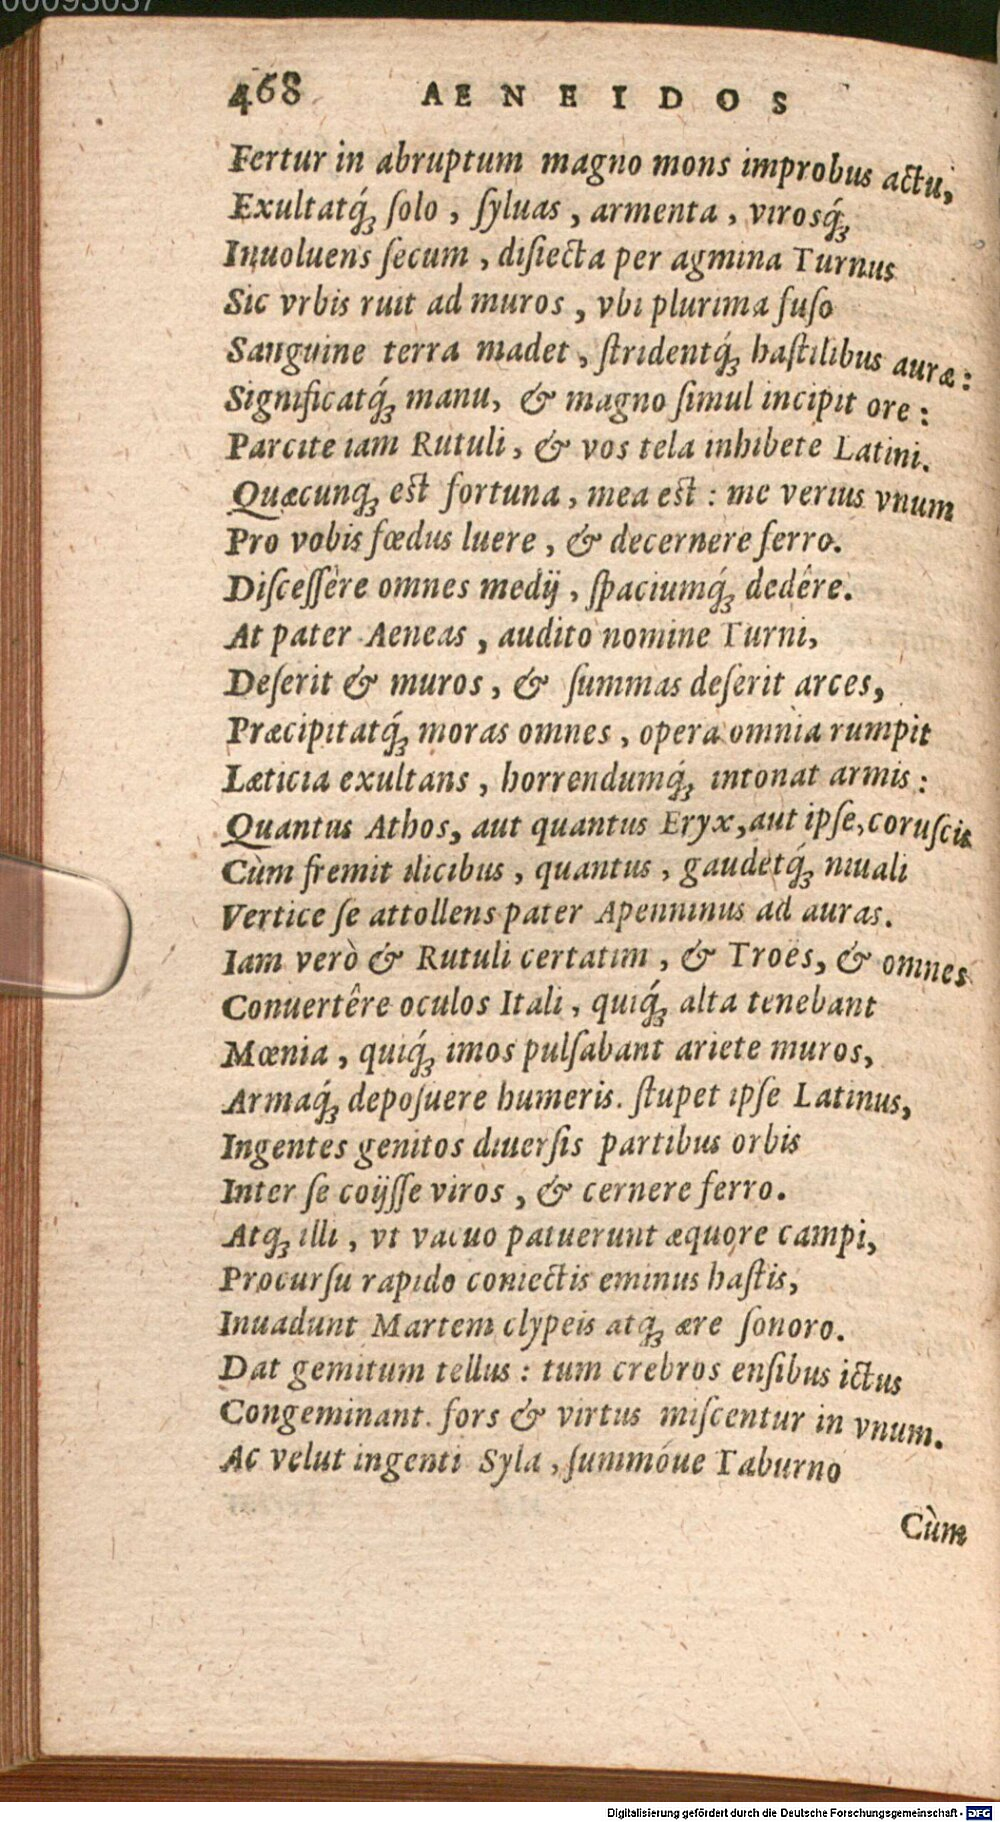 00093037
468 AENEIDOS
Fertur in abruptum magno mons improbus actu,
Exultatq́ꝫ ſolo, ſyluas, armenta, virosq́ꝫ
Inuoluens ſecum, diſiecta per agmina Turnus
Sic vrbis ruit ad muros, vbi plurima fuſo
Sanguine terra madet, ſtridentq́ꝫ haſtilibus auræ:
Significatq́ꝫ manu, & magno ſimul incipit ore:
Parcite iam Rutuli, & vos tela inhibete Latini.
Quæcunqꝫ eſt fortuna, mea eſt: me verius vnum
Pro vobis fœdus luere, & decernere ferro.
Diſceſſère omnes medij, ſpaciumq́ꝫ dedêre.
At pater Aeneas, audito nomine Turni,
Deſerit & muros, & ſummas deſerit arces,
Præcipitatq́ꝫ moras omnes, opera omnia rumpit
Læticia exultans, horrendumq́ꝫ intonat armis:
Quantus Athos, aut quantus Eryx, aut ipſe, coruſcis
Cùm fremit ilicibus, quantus, gaudetq́ꝫ niuali
Vertice ſe attollens pater Apenninus ad auras.
Iam verò & Rutuli certatim, & Troës, & omnes
Conuertêre oculos Itali, quiq́ꝫ alta tenebant
Mœnia, quiq́ꝫ imos pulſabant ariete muros,
Armaq́ꝫ depoſuere humeris. ſtupet ipſe Latinus,
Ingentes genitos diuerſis partibus orbis
Inter ſe coijſſe viros, & cernere ferro.
Atqꝫ illi, vt vacuo patuerunt æquore campi,
Procurſu rapido coniectis eminus haſtis,
Inuadunt Martem clypeis atqꝫ ære ſonoro.
Dat gemitum tellus: tum crebros enſibus ictus
Congeminant. fors & virtus miſcentur in vnum.
Ac velut ingenti Syla, ſummóue Taburno
Cùm
Digitalisierung gefördert durch die Deutsche Forschungsgemeinschaft - DFG